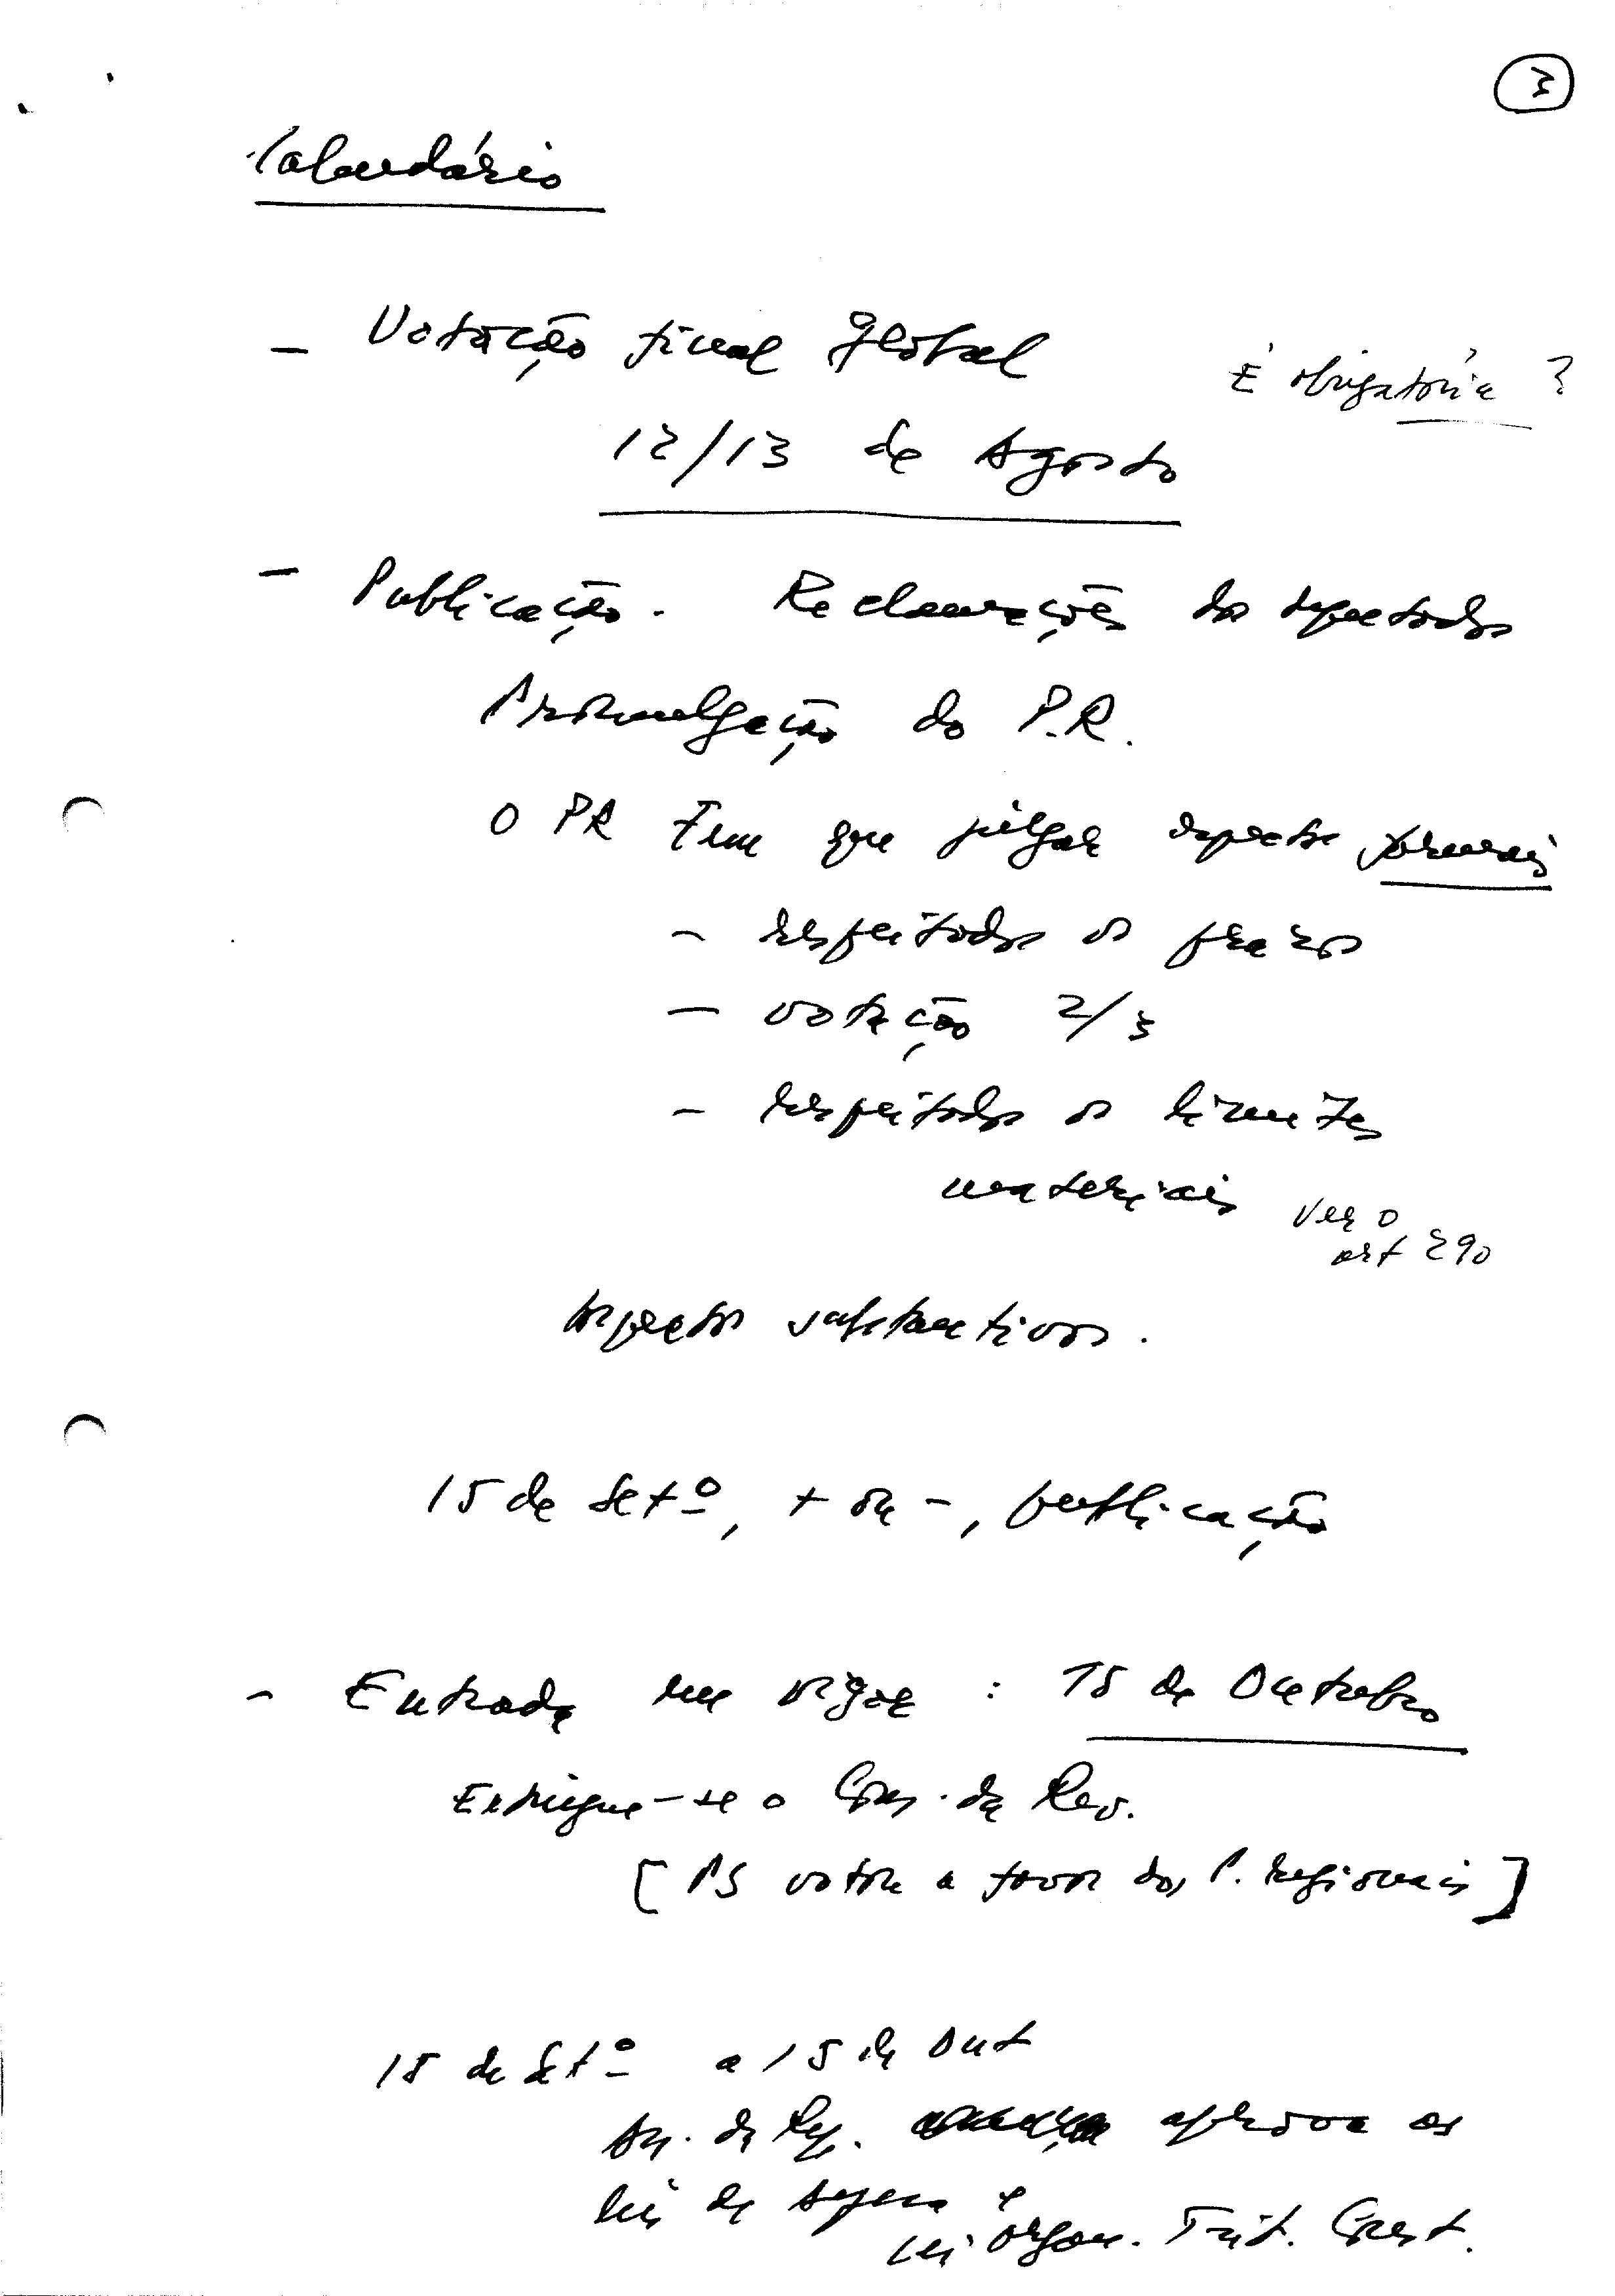 3
Calendário
- Votação final global
É obrigatória ?
12/13 de Agosto
- Publicação. Reclamações dos deputados
Promulgação do P.R.
O PR tem que julgar aspectos formais
- respeitados os prazos
- votação 2/3
- respeitados os limites
materiais
Ver o
art 290
Aspectos substantivos.
15 de Setº, + ou -, publicação
- Entrada em vigor : 15 de Outubro
Extingue-se o Cons. da Rev.
[PS votou a favor dos P. Regionais]
15 de Setº a 15 de Out
As. da Rep. aprova as
leis de defesa e
lei organ. Trib. Const.